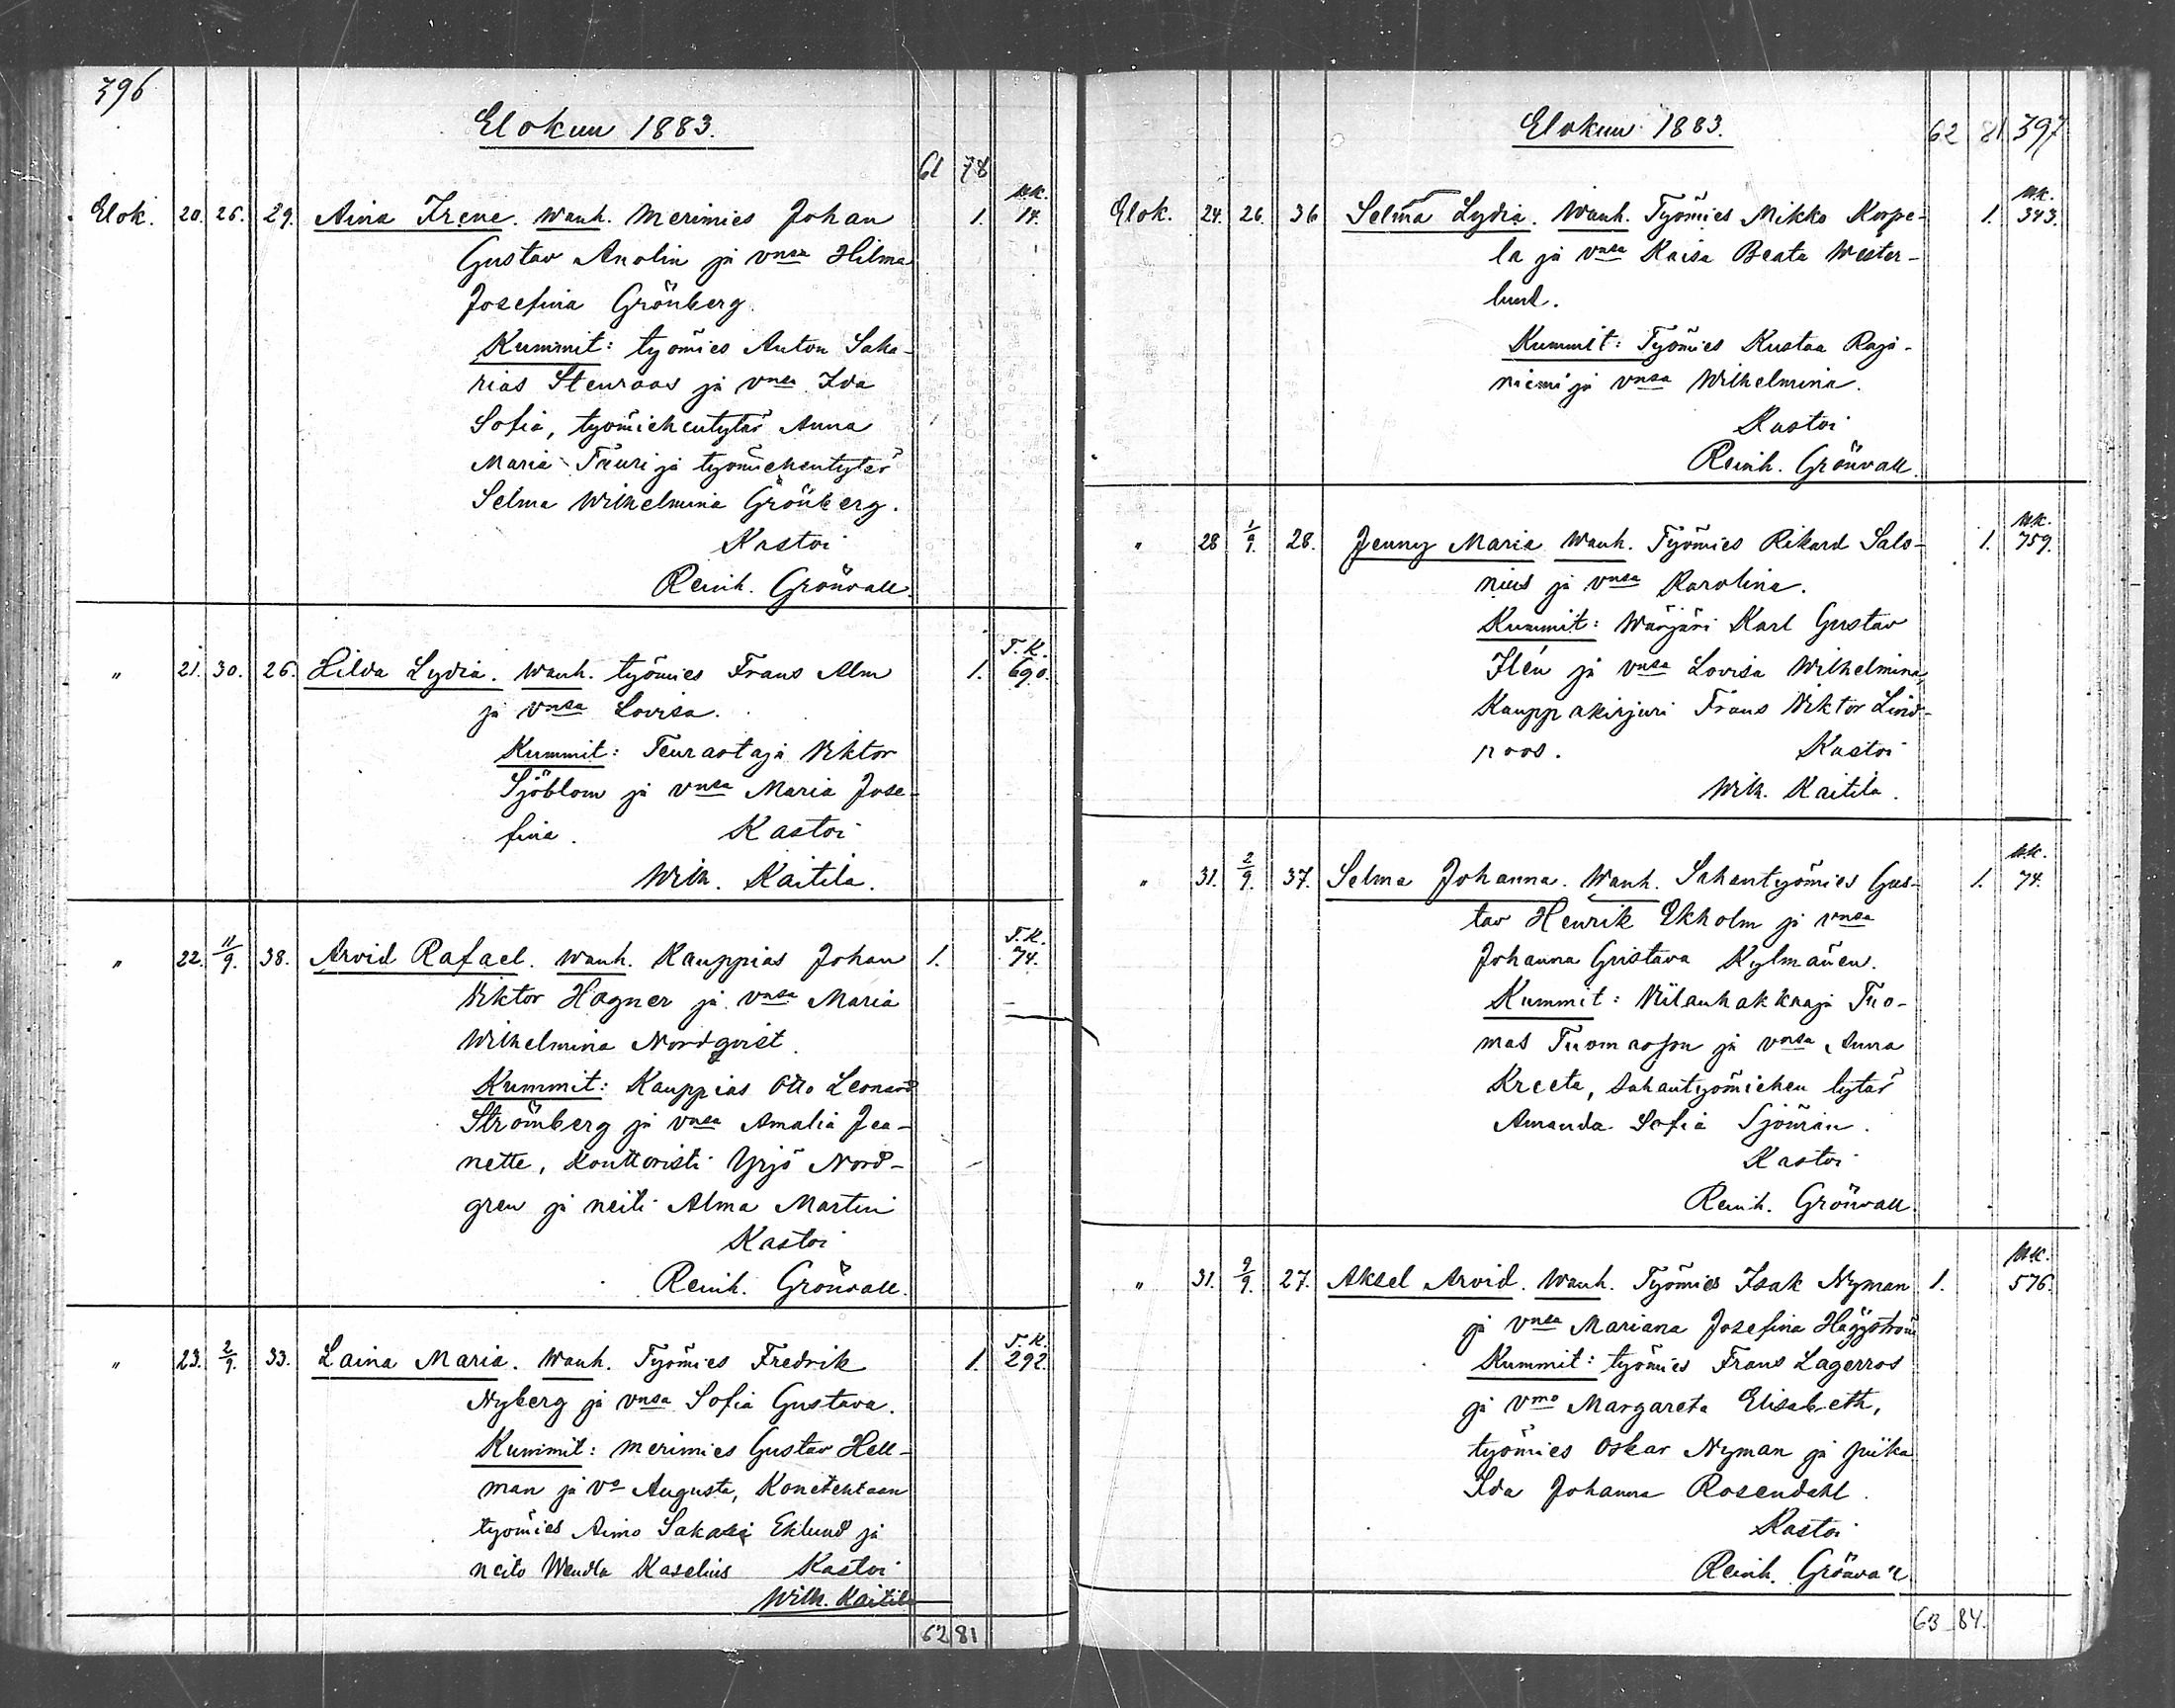 396
Elokuu 1883.
61 78
Elok. 20. 26. 29. Aina Irene. Wanh. Merimies Johan 1. Uk. 14.
Gustav Anolin ja vnsa Hilma
Josefina Grönberg.
Kummit: työmies Anton Saka-
rias Stenroos ja vnsa Ida
Sofia, työmiehentytär Anna
Maria Tauri ja työmiehentytär
Selma Wilhelmina Grönberg.
Kastoi
Reinh. Grönvall.
" 21. 30. 26. Hilda Lydia. Wanh. työmies Frans Alm 1. T.K. 690.
ja vnsa Lovisa.
Kummit: Teurastaja Viktor
Sjöblom ja vnsa Maria Jose-
fina. Kastoi
Wilh. Kaitila.
" 22. 11/9. 38. Arvid Rafael. Wanh. Kauppias Johan 1. T.K. 74.
Viktor Hagner ja vnsa Maria
Wilhelmina Nordqvist.
Kummit: Kauppias Otto Leonard
Strömberg ja vnsa Amalia Jea-
nette, Konttoristi Yrjö Nord-
gren ja neiti Alma Martin
Kastoi
Reinh. Grönvall.
" 23. 2/9. 33. Laina Maria. Wanh. Työmies Fredrik 1. T.K. 292.
Nyberg ja vnsa Sofia Gustava.
Kummit: merimies Gustav Hell-
man ja vo Augusta, Konetehtaan
työmies Aimo Sakari Eklund ja
neito Wendla Kaselius Kastoi
Wilh. Kaitila
62 81
Elokuu 1883. 62 81 397
Elok. 24. 26. 36 Selma Lydia. Wanh. Työmies Mikko Korpe- 1. Uk. 343.
la ja vnsa Kaisa Beata Wester-
lund.
Kummit: Työmies Kustaa Raja-
niemi ja vnsa Wilhelmina.
Kastoi
Reinh. Grönvall.
" 28 1/9. 28. Jenny Maria Wanh. Työmies Rikard Salo- 1. Uk. 759.
nius ja vnsa Karolina.
Kummit: Wärjäri Karl Gustav
Ilén ja vnsa Lovisa Wilhelmina,
Kauppakirjuri Frans Viktor Lind-
roos. Kastoi
Wilh. Kaitila.
" 31. 2/9. 37. Selma Johanna. Wanh. Sahantyömies Gus- 1. Uk. 74.
tav Henrik Ekholm ja vnsa
Johanna Gustava Kylmänen.
Kummit: Viilanhakkaaja Tuo-
mas Tuomasson ja vnsa Anna
Kreeta, Sahantyömiehen tytär
Amanda Sofia Sjöman.
Kastoi
Reinh. Grönvall
" 31. 9/9. 27. Aksel Arvid. Wanh. Työmies Isak Nyman 1. Uk. 576.
ja vnsa Mariana Josefina Häggström
Kummit: työmies Frans Lagerros
ja vmo Margareta Elisabeth,
työmies Oskar Nyman ja piika
Ida Johanna Rosendahl.
Kastoi
Reinh. Grönvall
63 84.